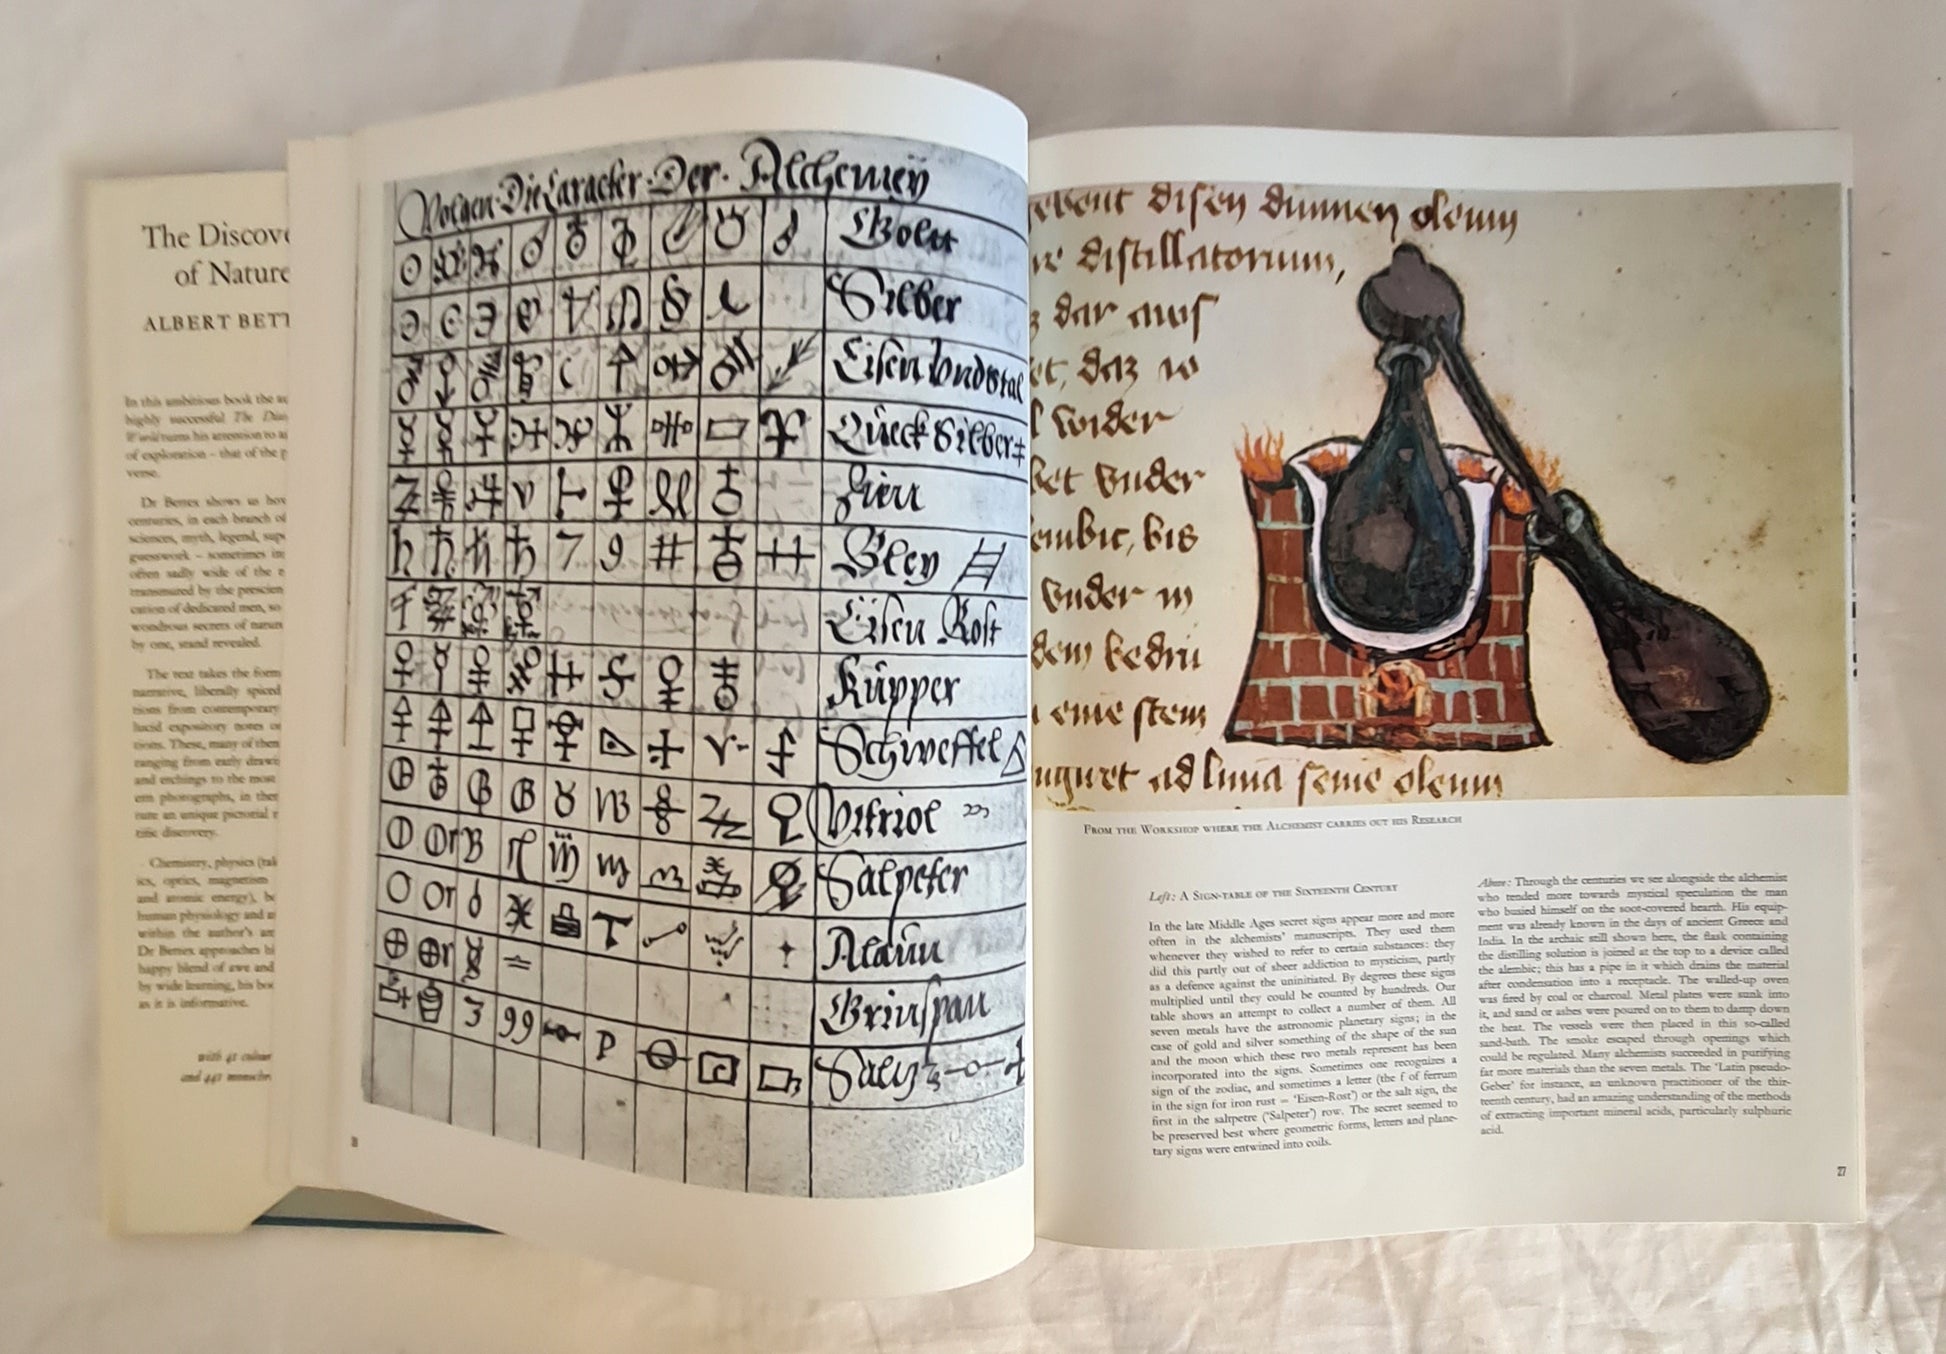 The Discove
of Nature
ALBERT BETT
In this ambitious book the
highly successful The
turns his attention to
of exploration – that of the p
verse.
Dr Bettex shows us how
centuries, in each branch of
sciences, myth, legend,
guesswork – sometimes
often sadly wide of the
transmuted by the
cation of dedicated men, so
wondrous secrets of nature
by one, stand revealed.
The text takes the form
narrative, liberally spiced
tions from contemporary
lucid expository notes
tions. These, many of them
ranging from early
and etchings to the most
ern photographs, in
an unique pictorial
tific discovery.
Chemistry, physics
ics, optics, magnetism
and atomic energy),
human physiology and
within the author's
Dr Bettex approaches
happy blend of awe and
by wide learning, his
as it is informative.
with 41 colour
and 441
Volgen Die Caracter Der Alchemey
Goltt
Silber
Eisen
Queck Silber
Zien
Bley
Eisen Rost
Küpper
Schweffel
Vitriol
or B Salpeter
or Alaun
or Grinspan
3 99 P Saltz
disen dunnen oleum
distillatorium,
dar aus
daz
wider
vnder
bis
vnder in
dem
eine
ad luna oleum
FROM THE WORKSHOP WHERE THE ALCHEMIST CARRIES OUT HIS RESEARCH
Left: A SIGN-TABLE OF THE SIXTEENTH CENTURY
In the late Middle Ages secret signs appear more and more
often in the alchemists' manuscripts. They used them
whenever they wished to refer to certain substances: they
did this partly out of sheer addiction to mysticism, partly
as a defence against the uninitiated. By degrees these signs
multiplied until they could be counted by hundreds. Our
table shows an attempt to collect a number of them. All
seven metals have the astronomic planetary signs; in the
case of gold and silver something of the shape of the sun
and the moon which these two metals represent has been
incorporated into the signs. Sometimes one recognizes a
sign of the zodiac, and sometimes a letter (the f of ferrum
in the sign for iron rust = 'Eisen-Rost') or the salt sign, the
first in the saltpetre ('Salpeter') row. The secret seemed to
be preserved best where geometric forms, letters and plane-
tary signs were entwined into coils.
Above: Through the centuries we see alongside the alchemist
who tended more towards mystical speculation the man
who busied himself on the soot-covered hearth. His equip-
ment was already known in the days of ancient Greece and
India. In the archaic still shown here, the flask containing
the distilling solution is joined at the top to a device called
the alembic; this has a pipe in it which drains the material
after condensation into a receptacle. The walled-up oven
was fired by coal or charcoal. Metal plates were sunk into
it, and sand or ashes were poured on to them to damp down
the heat. The vessels were then placed in this so-called
sand-bath. The smoke escaped through openings which
could be regulated. Many alchemists succeeded in purifying
far more materials than the seven metals. The 'Latin pseudo-
Geber' for instance, an unknown practitioner of the thir-
teenth century, had an amazing understanding of the methods
of extracting important mineral acids, particularly sulphuric
acid.
27